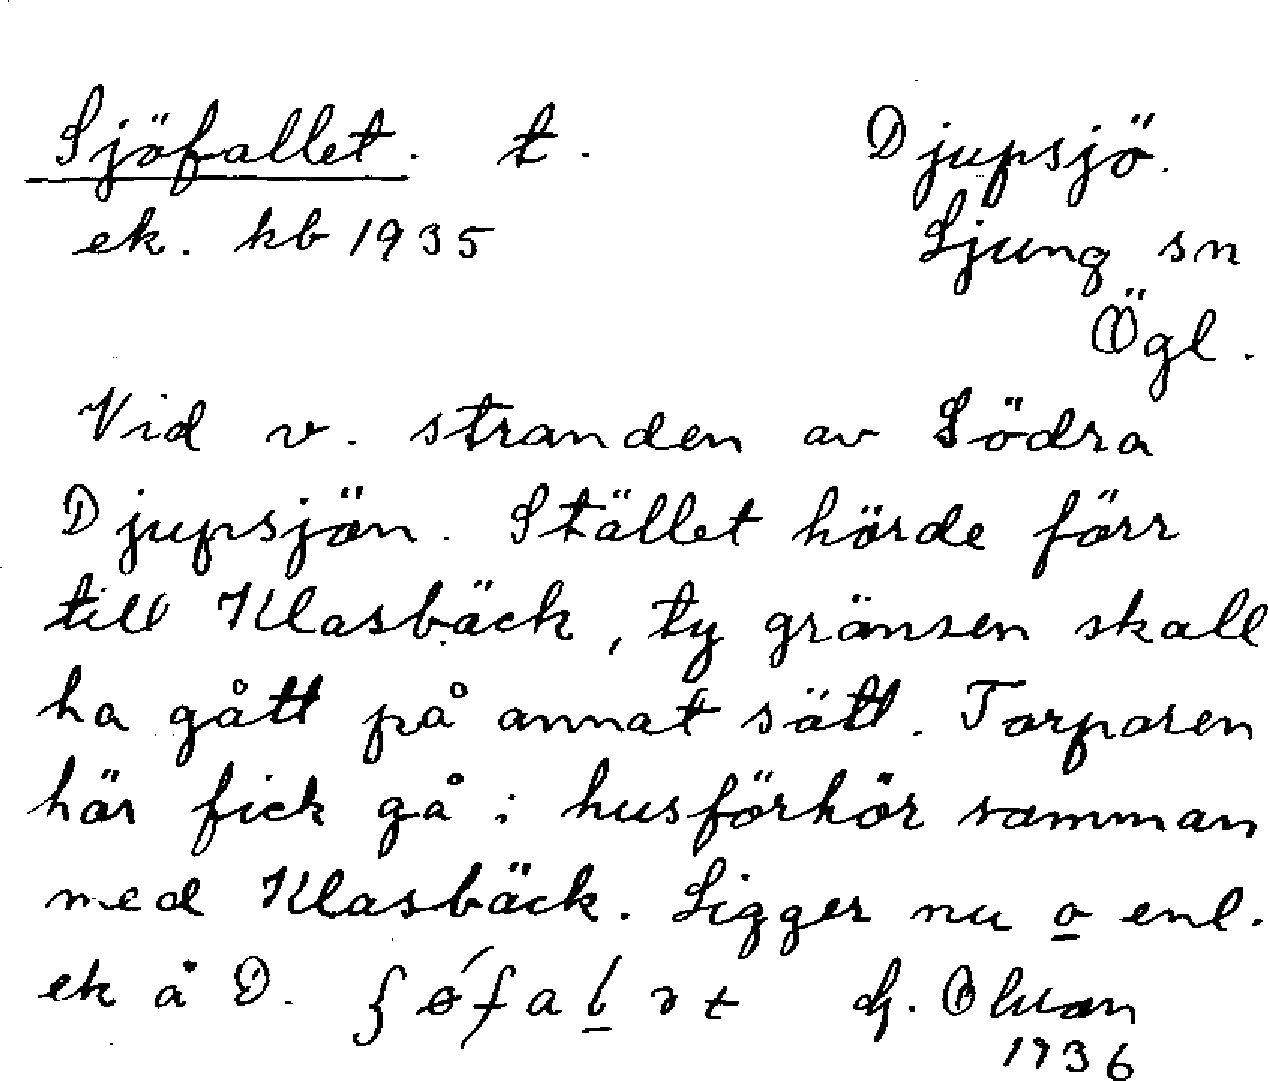 Sjöfallet. t. Djupsjö.
ek. kb 1935 Ljung sn
Ögl.
Vid v. stranden av Södra
Djupsjön. Stället hörde förr
till Klasbäck, ty gränsen skall
ha gått på annat sätt. Torparen
här fick gå i husförhör samman
med Klasbäck. Ligger nu o enl.
ek å D.
1936